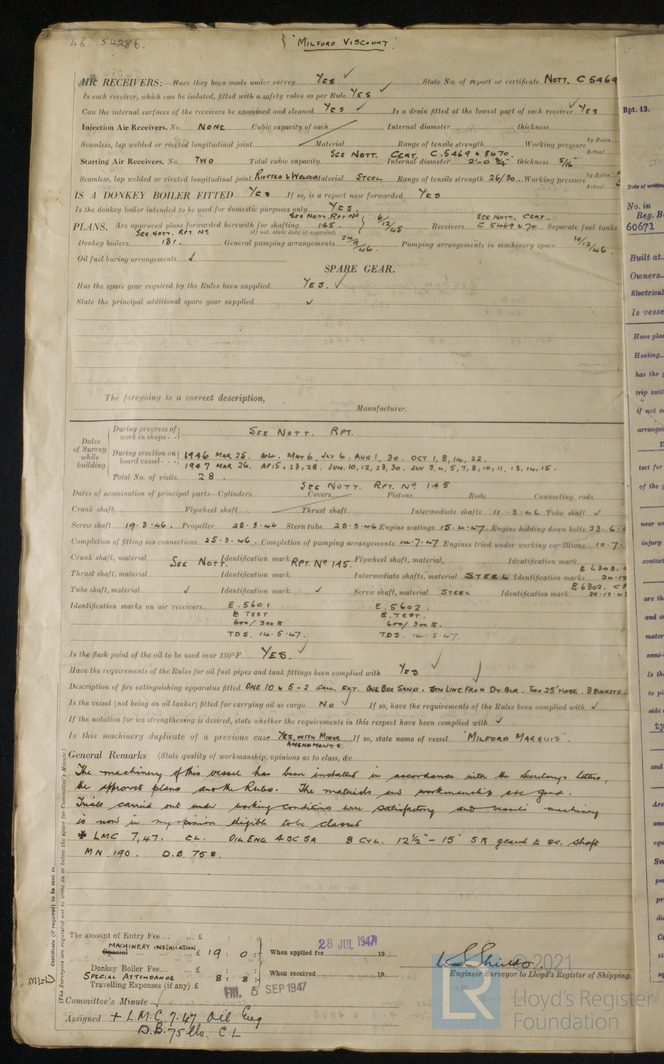 48 54286.
"MILFORD VISCOUNT"
AIR RECEIVERS:— Have they been made under survey YES ✓ State No. of report or certificate NOTT. C 5469
Is each receiver, which can be isolated, fitted with a safety valve as per Rule YES ✓
Can the internal surfaces of the receivers be examined and cleaned YES ✓ Is a drain fitted at the lowest part of each receiver ✓ YES
Injection Air Receivers, No. NONE Cubic capacity of each Internal diameter thickness
Seamless, lap welded or riveted longitudinal joint Material Range of tensile strength Working pressure by Rules Actual
SEE NOTT. CERT. C.5469 & 5470.
Starting Air Receivers, No. TWO Total cubic capacity Internal diameter thickness 5/16"
Seamless, lap welded or riveted longitudinal joint RIVETED & WELDED Material STEEL Range of tensile strength 26/30 Working pressure by Rules Actual
IS A DONKEY BOILER FITTED YES If so, is a report now forwarded YES
Is the donkey boiler intended to be used for domestic purposes only YES.
PLANS. Are approved plans forwarded herewith for shafting SEE NOTT. RPT NO 145. 6/12/45 Receivers SEE NOTT. CERT. C 5469 & 70 Separate fuel tanks
(If not, state date of approval)
Donkey boilers SEE NOTT. RPT NO 131. General pumping arrangements Pumping arrangements in machinery space 10/12/46
Oil fuel burning arrangements ✓
SPARE GEAR.
Has the spare gear required by the Rules been supplied YES ✓
State the principal additional spare gear supplied ✓
The foregoing is a correct description,
Manufacturer.
Dates of Survey while building
During progress of work in shops - - SEE NOTT. RPT.
During erection on board vessel - - - 1946 MAR 25. MAY 6, JLY 6. AUG 1, 30. OCT 1, 8, 14, 22.
1947 MAR 26. AP 15, 23, 28. JUN. 10, 12, 23, 30. JLY 3, 4, 5, 7, 8, 10, 11, 13, 14, 15.
Total No. of visits 28.
SEE NOTT. RPT. NO 145
Dates of examination of principal parts—Cylinders Covers Pistons Rods Connecting rods
Crank shaft Flywheel shaft Thrust shaft Intermediate shafts 11-3-46 Tube shaft ✓
Screw shaft 19.3.46 Propeller 25-3-46 Stern tube 25-3-46 Engine seatings 15-4-47. Engine holding down bolts 23.6.4
Completion of fitting sea connections 25.3.46. Completion of pumping arrangements 14-7-47 Engines tried under working conditions 10.7.
Crank shaft, material SEE NOTT. Identification mark RPT. NO 145. Flywheel shaft, material, Identification mark
Thrust shaft, material Identification mark Intermediate shafts, material STEEL Identification marks
Tube shaft, material ✓ Identification mark ✓ Screw shaft, material STEEL Identification mark
Identification marks on air receivers E.5601 E.5602.
E TEST E.TEST.
600/300 lb 600/300 lb
TDS. 14.5.47. TDS. 14.5.47.
Is the flash point of the oil to be used over 150°F. YES. ✓
Have the requirements of the Rules for oil fuel pipes and tank fittings been complied with YES ✓
Description of fire extinguishing apparatus fitted ONE 10 & 5-2 GALL. EXT. ONE BOX SAND. STM LINE FROM DY. BLR. TWO 25' HOSE. 8 BUCKETS.
Is the vessel (not being an oil tanker) fitted for carrying oil as cargo NO ✓ If so, have the requirements of the Rules been complied with ✓
If the notation for ice strengthening is desired, state whether the requirements in this respect have been complied with ✓
Is this machinery duplicate of a previous case YES, WITH MINOR AMENDMENTS If so, state name of vessel "MILFORD MARQUIS".
General Remarks (State quality of workmanship, opinions as to class, &c.
The machinery of this vessel has been installed in accordance with the Secretarys Letters,
the approved plans and the Rules. The materials and workmanship are good.
Trials carried out under working conditions were satisfactory and vessels machinery
is now in my opinion eligible to be classed
✱ LMC 7,47. CL. OIL ENG 4SCSA 8 CYL. 12½" - 15" SR geared to sc. shaft
MN 190. D.B. 75 lb.
The amount of Entry Fee ... ... £
MACHINERY INSTALLATION
Special ... ... £ 19 : 0 :
When applied for 28 JUL 1947 19
Donkey Boiler Fee... ... £
SPECIAL ATTENDANCE 8 : 8 :
Travelling Expenses (if any) £
When received 19
Engineer Surveyor to Lloyd's Register of Shipping.
FRI. 5 SEP 1947
Committee's Minute
Assigned + L.M.C. 7.47 Oil Eng
D.B. 75 lb. C L
Certificate (if required) to be sent to
(The Surveyors are requested not to write on or below the space for Committee's Minute.)
2021
LR
Lloyd's Register
Foundation
Rpt. 13.
No. in
Reg. B
60671
Built at
Owners
Electrical
Is vesse
Have plan
Heating
has the
trip swit
if not
arrange
test for
of the
near
injury
contact
are th
and
mater
semi-
Is th
to pi
side
ty
all
Are